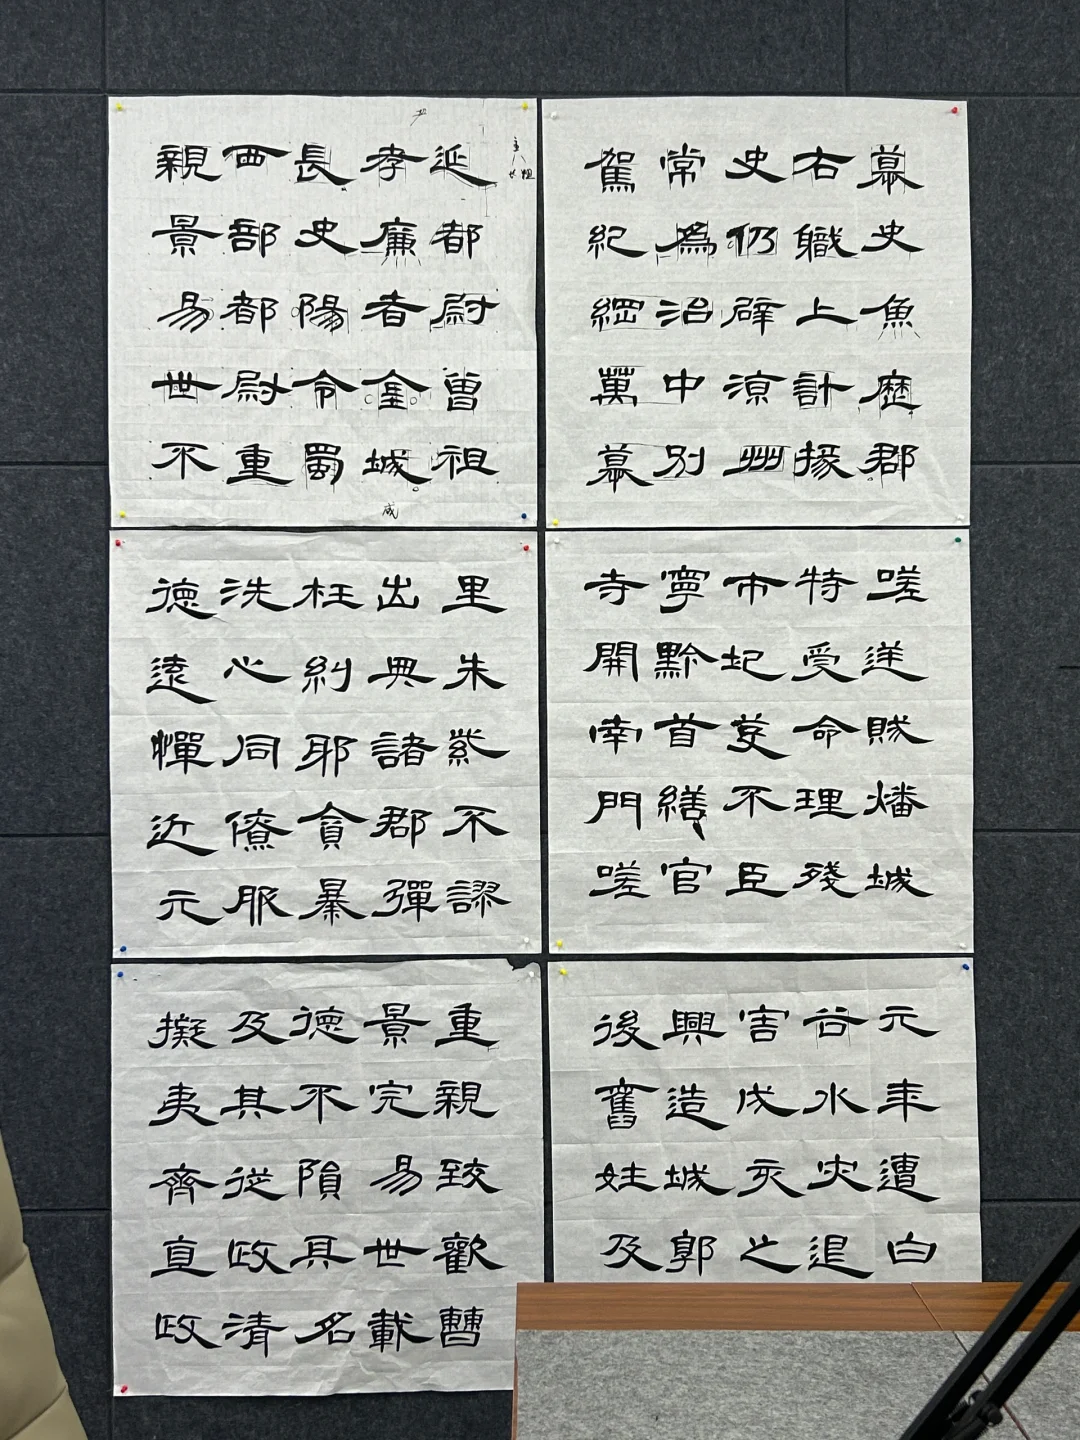 幕史魚歷郡
右職上計掾
史仍辟涼州
常為治中別
駕紀綱萬幕
延都尉曾祖
孝廉者金城
長史陽令蜀
西部都尉重
親景易世不
成
嗟逆賊燔城
特受命理殘
市圮芟不臣
寧黔首繕官
寺開南門嗟
里朱紫不謬
出典諸郡彈
枉糾耶貪暴
洗心同僚服
德遠憚近元
元年遭白
谷水灾退
害戌亥之
興造城郭
後舊姓及
重親致歡曹
景完易世載
德不隕其名
及其從政清
擬夷齊直政